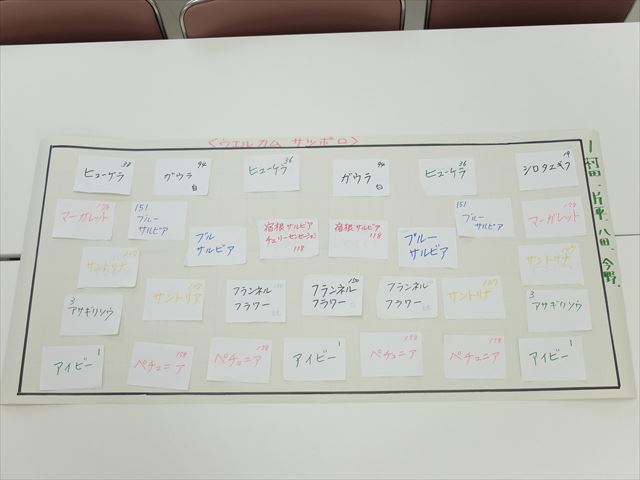 <ウエルカム サッポロ>
1 村田、片平、八田、今野
38
ヒューケラ
94
ガウラ
白
36
ヒューケラ
94
ガウラ
白
36
ヒューケラ
19
シロタエギク
マーガレット
151
ブルー
サルビア
ブル
サルビア
宿根サルビア
チェリーセンセーション
118
宿根サルビア
118
ブルー
サルビア
151
ブルー
サルビア
マーガレット
サントリナ
167
サントリア
フランネル
フラワー
150
フランネル
フラワー
フランネル
フラワー
167
サントリナ
サントリナ
3
アサギリソウ
3
アサギリソウ
1
アイビー
158
ペチュニア
158
ペチュニア
1
アイビー
158
ペチュニア
158
ペチュニア
1
アイビー